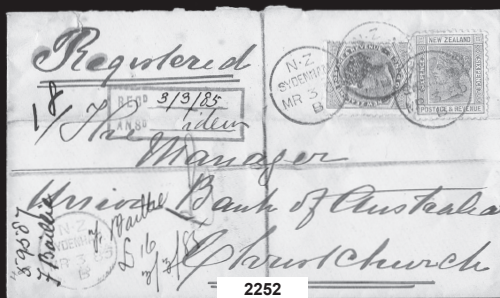 Registered
N·Z
SYDENHAM
MR 3
B
NEW ZEALAND
POSTAGE & REVENUE
18
RECD 3/3/85
ANSD idem
The
Manager
Union Bank of Australia
Christchurch
N·Z
SYDENHAM
MR 3 85
B
F Baillie
£16
3/3/85
2252